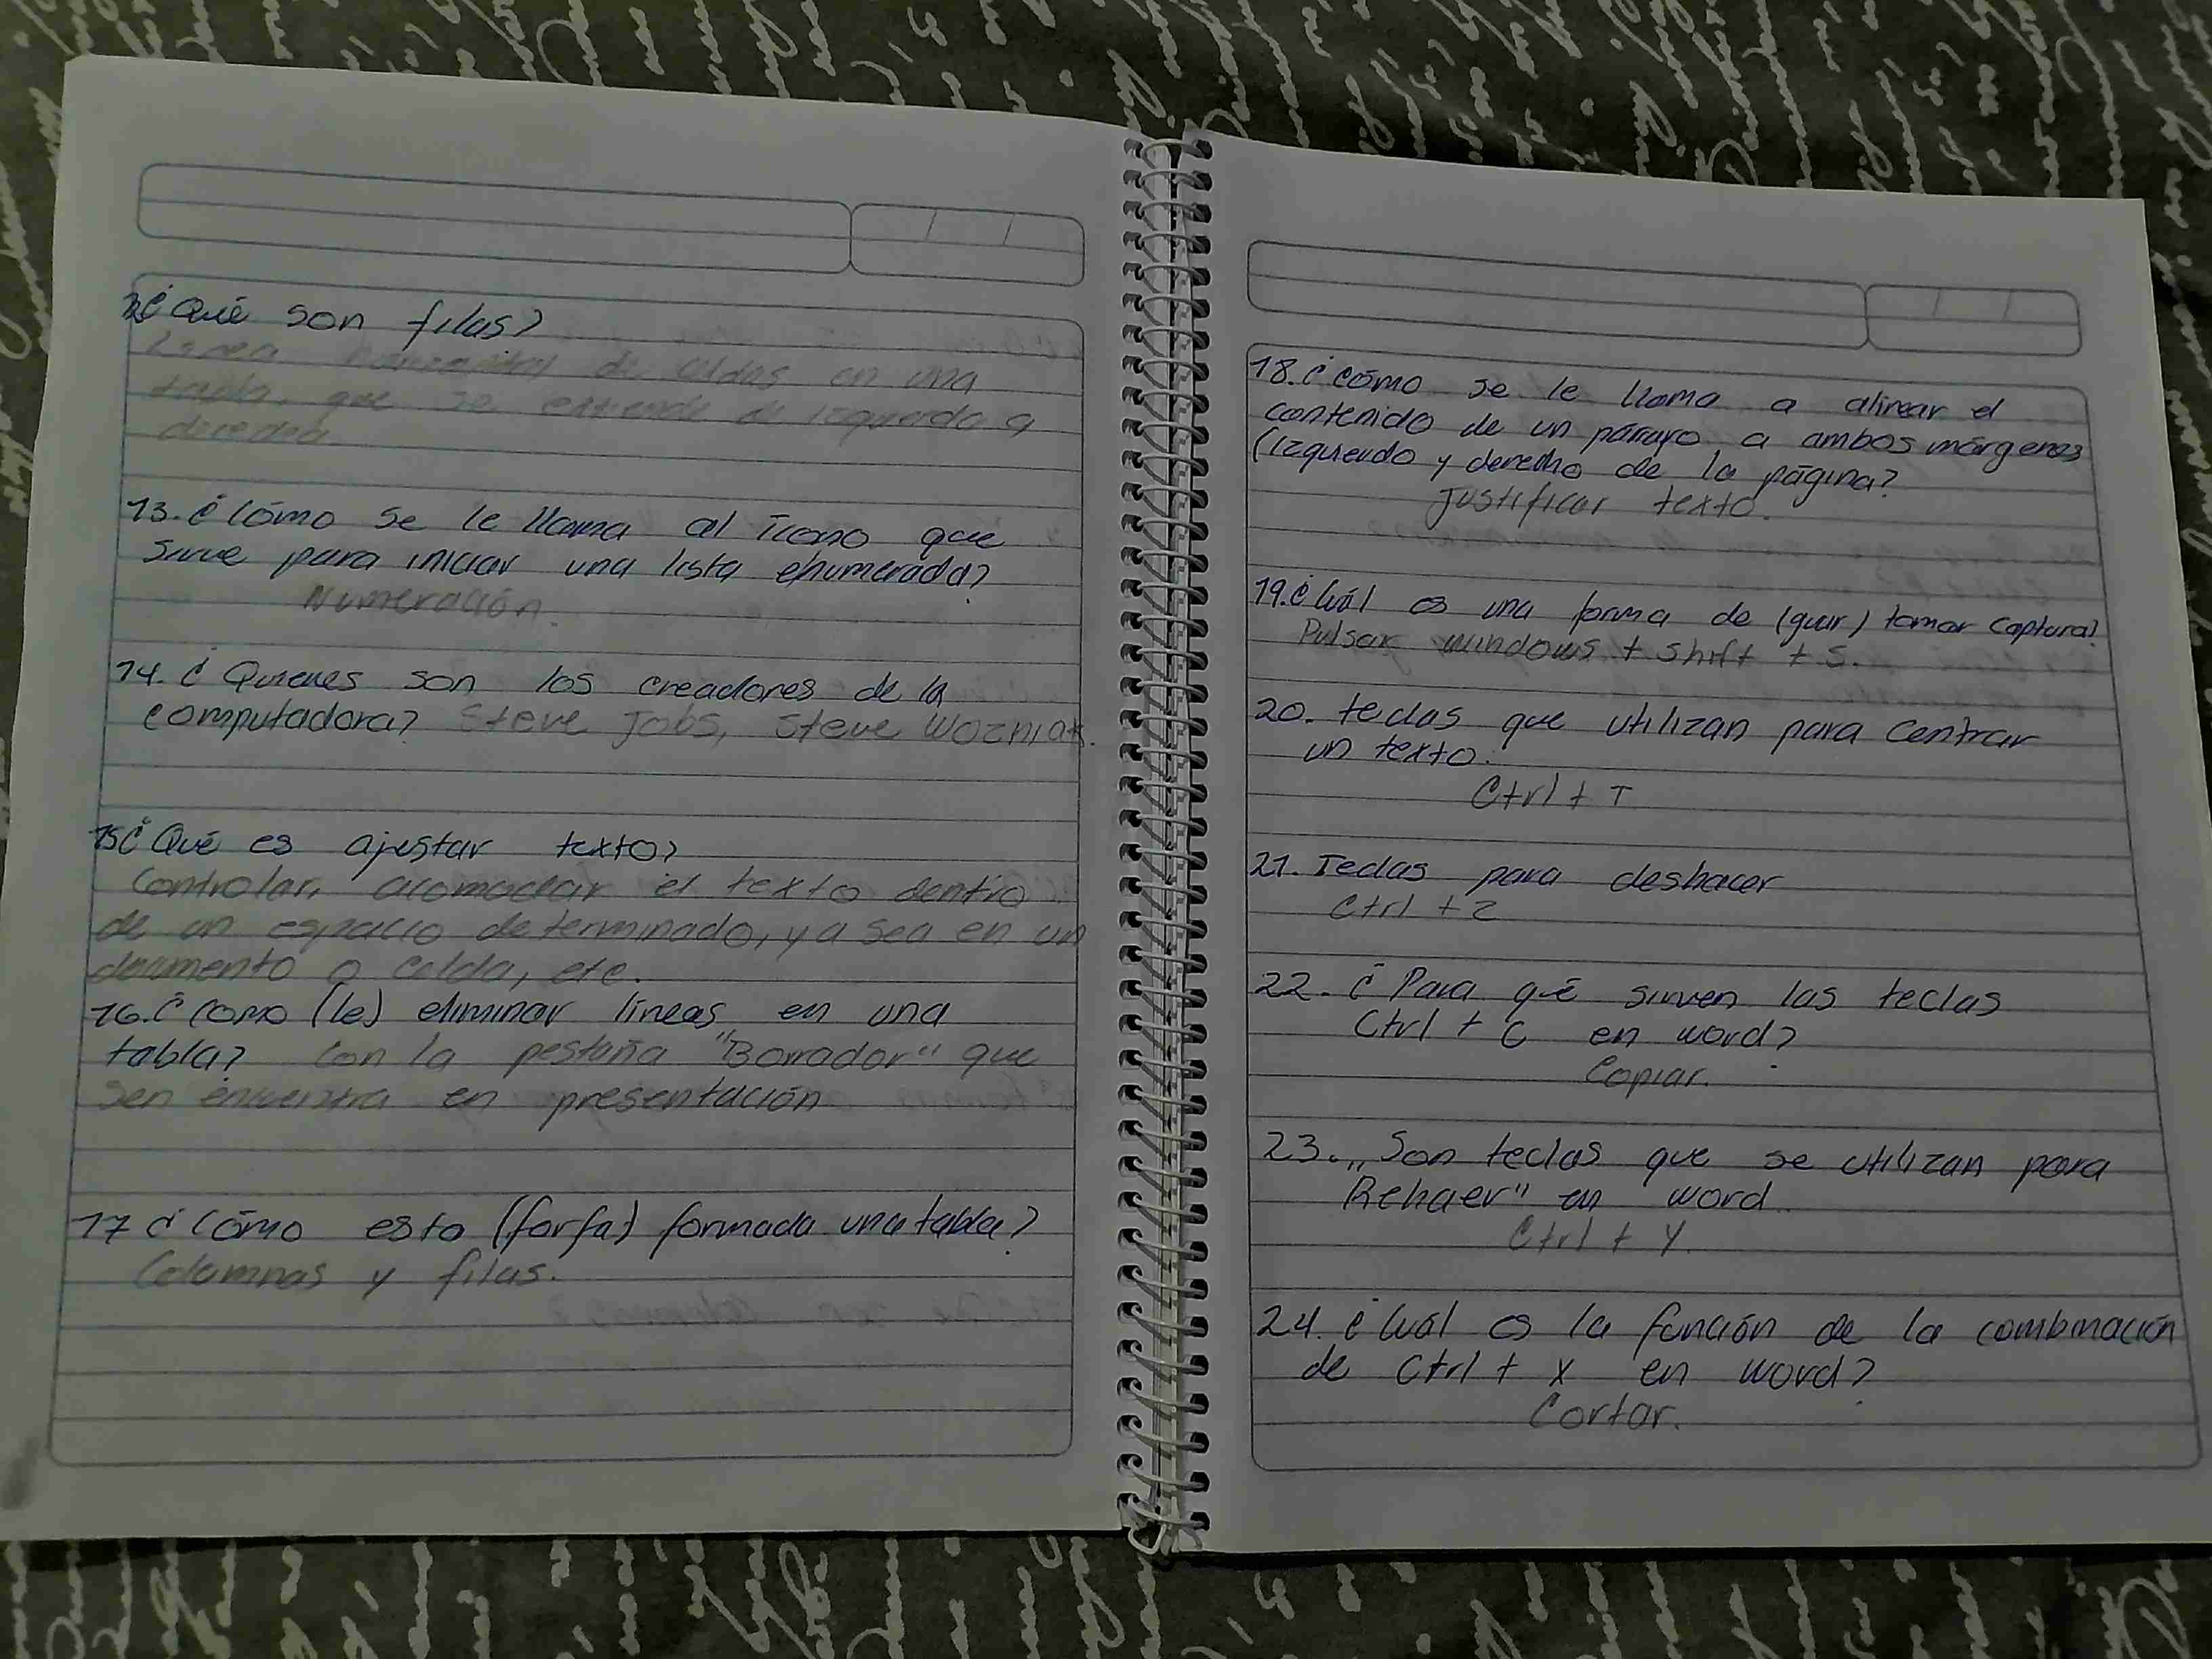 12¿Qué son filas?
Línea horizontal de celdas en una
tabla, que se extiende de izquierda a
derecha.
13. ¿Cómo se le llama al ícono que
sirve para iniciar una lista enumerada?
Numeración.
14. ¿Quienes son los creadores de la
computadora? Steve Jobs, Steve Wozniak.
15¿Qué es ajustar texto?
Controlar, acomodar el texto dentro
de un espacio determinado, ya sea en un
documento o celda, etc.
16.¿Como (le) eliminar líneas en una
tabla? Con la pestaña "Borrador" que
sen encuentra en presentación
17 ¿Cómo esto (forfa) formada una tabla?
Columnas y filas.
18. ¿Cómo se le llama a alinear el
contenido de un párrafo a ambos márgenes
(Izquierdo y derecho de la página?
Justificar texto.
19. ¿Cuál es una forma de (guar) tomar captura?
Pulsar windows + shift + S.
20. teclas que utilizan para centrar
un texto.
Ctrl + T
21. Teclas para deshacer
Ctrl + Z
22. ¿Para qué sirven las teclas
Ctrl + C en word?
Copiar.
23. "Son teclas que se utilizan para
Rehaer" en word.
Ctrl + Y.
24. ¿Cuál es la función de la combinación
de Ctrl + X en word?
Cortar.